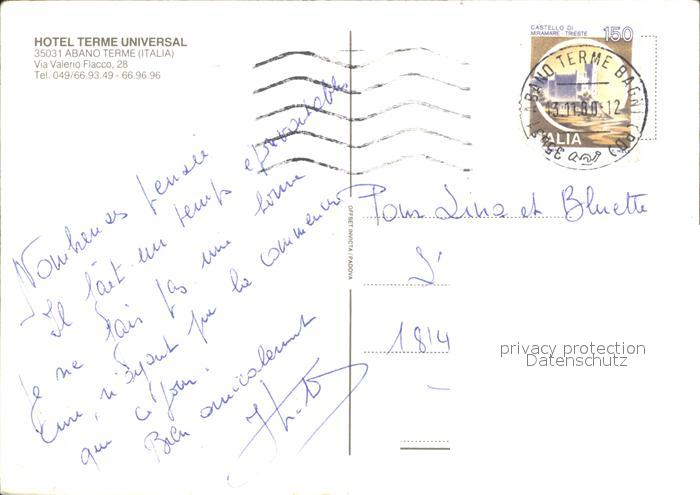 HOTEL TERME UNIVERSAL
35031 ABANO TERME (ITALIA)
Via Valerio Flacco, 28
Tel. 049/66.93.49 - 66.96.96
CASTELLO DI
MIRAMARE - TRIESTE
150
ITALIA
ABANO TERME BAGNI (PD)
Nombreuses pensées
Il fait un temps épouvantable
Je ne fais pas une bonne
Cure, n'ayant pu la commencer
que ce jour.
Bien amicalement
OFFSET INVICTA / PADOVA
Pour Lina et Bluette
1814
privacy protection
Datenschutz